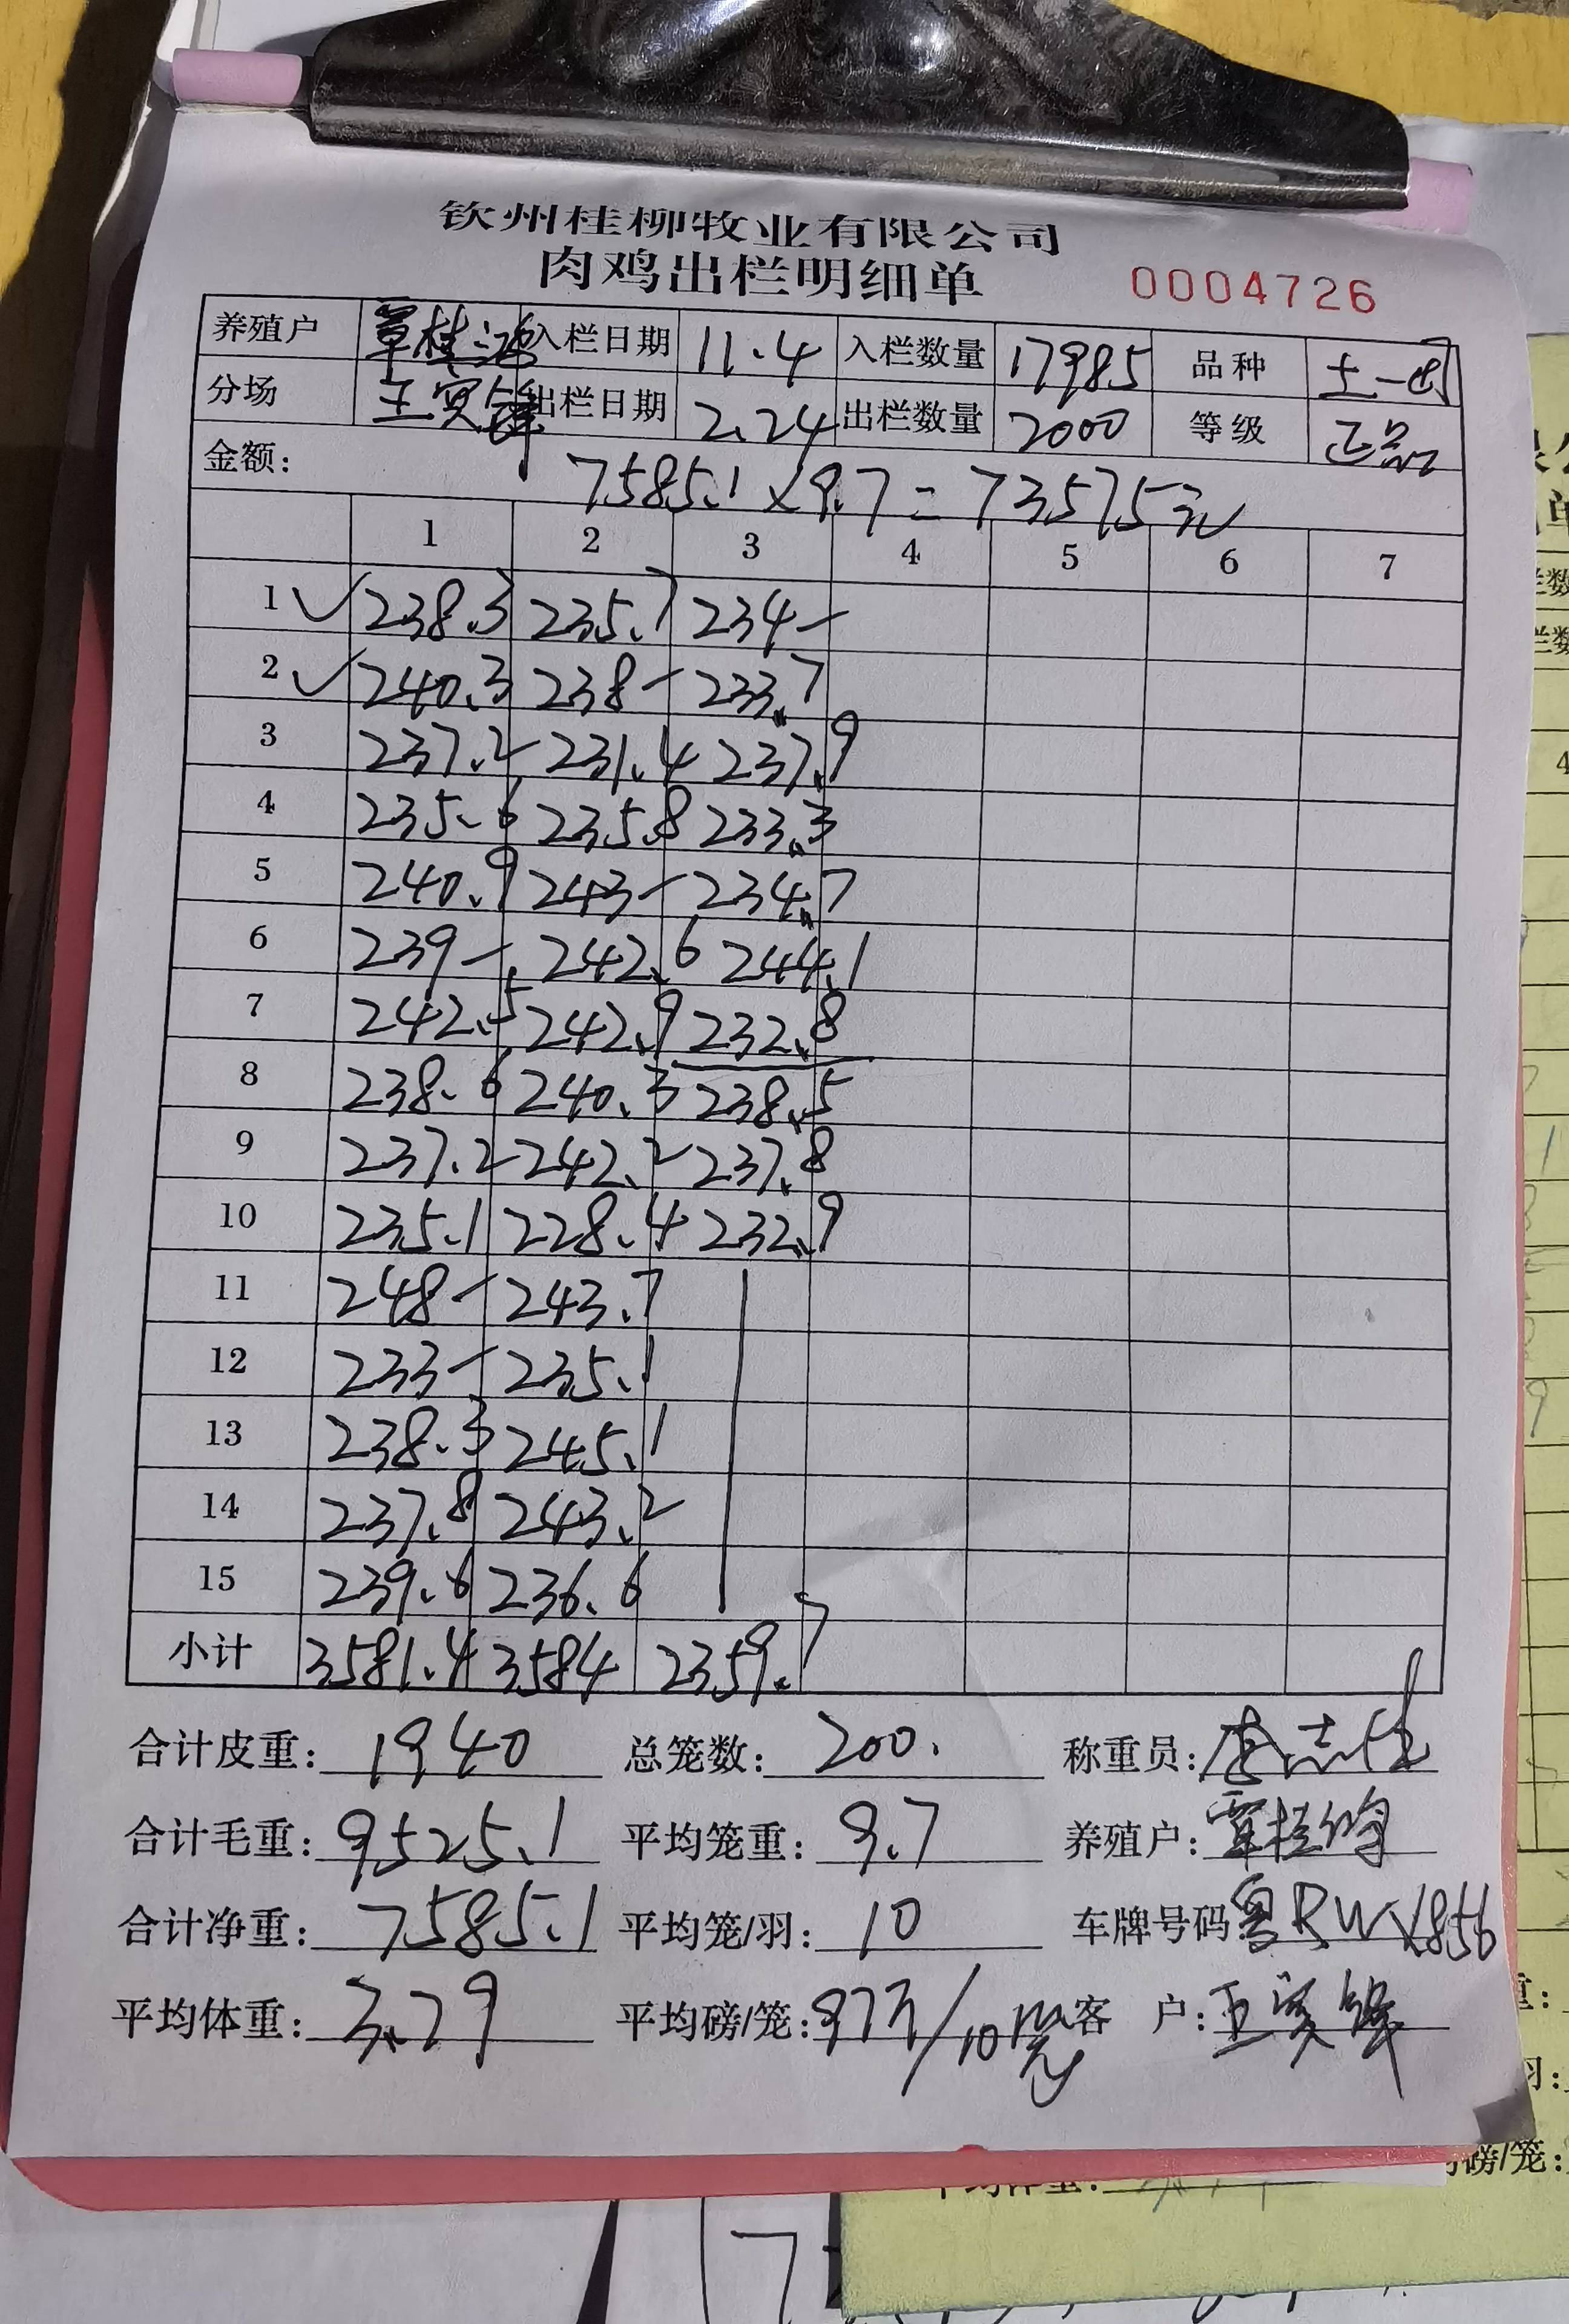 钦州桂柳牧业有限公司
肉鸡出栏明细单 0004726
养殖户 覃桂鸿 入栏日期 11.4 入栏数量 17985 品种 土一
分场 王宾锋 出栏日期 2.24 出栏数量 2000 等级 正品
金额: 7585.1×9.7=73575元
1 2 3 4 5 6 7
1 ✓ 238.3 235.7 234-
2 ✓ 240.3 238- 233.7
3 237.2 231.4 237.9
4 235.6 235.8 233.3
5 240.9 243- 234.7
6 239- 242.6 244.1
7 242.5 242.9 232.8
8 238.6 240.3 238.5
9 237.2 242.2 237.8
10 235.1 228.4 232.9
11 248- 243.7
12 233- 235.1
13 238.3 245.1
14 237.8 243.2
15 239.6 236.6
小计 3581.4 3584 2359.7
合计皮重: 1940 总笼数: 200. 称重员:
合计毛重: 9525.1 平均笼重: 9.7 养殖户: 覃桂
合计净重: 7585.1 平均笼/羽: 10 车牌号码 粤RWX856
平均体重: 3.79 平均磅/笼: 97斤/10笼 客 户: 王宾锋